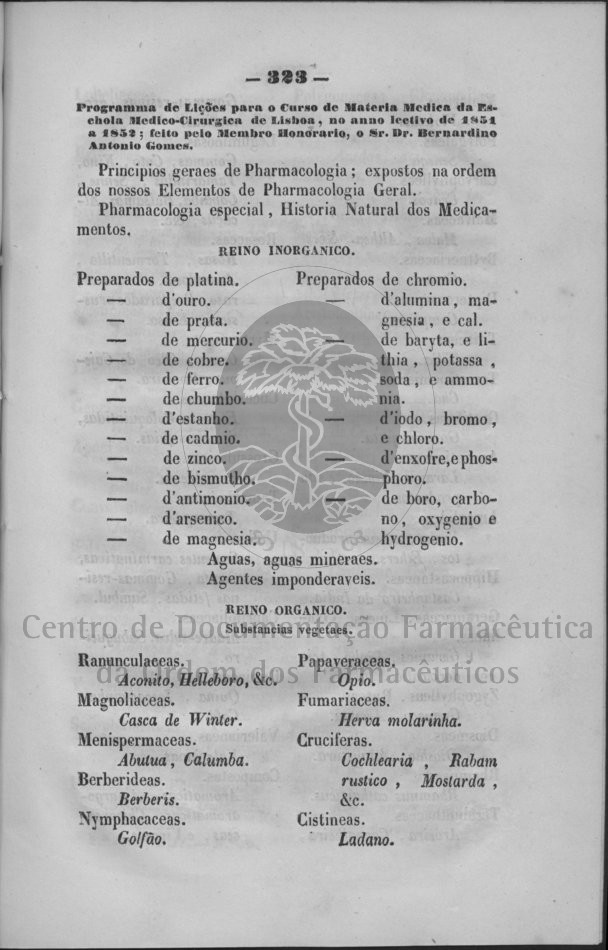 — 323 —
Programma de Lições para o Curso de Materia Medica da Es-
chola Medico-Cirurgica de Lisboa, no anno lectivo de 1851
a 1852; feito pelo Membro Honorario, o Sr. Dr. Bernardino
Antonio Gomes.
Principios geraes de Pharmacologia; expostos na ordem
dos nossos Elementos de Pharmacologia Geral.
Pharmacologia especial, Historia Natural dos Medica-
mentos.
REINO INORGANICO.
Preparados de platina.
— d'ouro.
— de prata.
— de mercurio.
— de cobre.
— de ferro.
— de chumbo.
— d'estanho.
— de cadmio.
— de zinco.
— de bismutho.
— d'antimonio.
— d'arsenico.
— de magnesia.
Preparados de chromio.
— d'alumina, ma-
gnesia, e cal.
— de baryta, e li-
thia, potassa,
soda, e ammo-
nia.
— d'iodo, bromo,
e chloro.
— d'enxofre, e phos-
phoro.
— de boro, carbo-
no, oxygenio e
hydrogenio.
Aguas, aguas mineraes.
Agentes imponderaveis.
REINO ORGANICO.
Centro de Documentação Farmacêutica
Substancias vegetaes.
da Ordem dos Farmacêuticos
Ranunculaceas.
Aconito, Helleboro, &c.
Magnoliaceas.
Casca de Winter.
Menispermaceas.
Abutua, Calumba.
Berberideas.
Berberis.
Nymphacaceas.
Golfão.
Papaveraceas.
Opio.
Fumariaceas.
Herva molarinha.
Cruciferas.
Cochlearia, Rabam
rustico, Mostarda,
&c.
Cistineas.
Ladano.